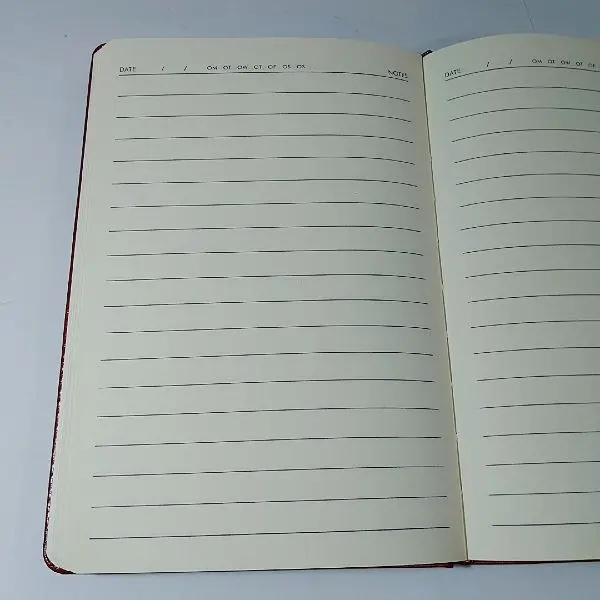 DATE / / OM OT OW OT OF OS OS NOTES
DATE / / OM OT OW OT OF OS